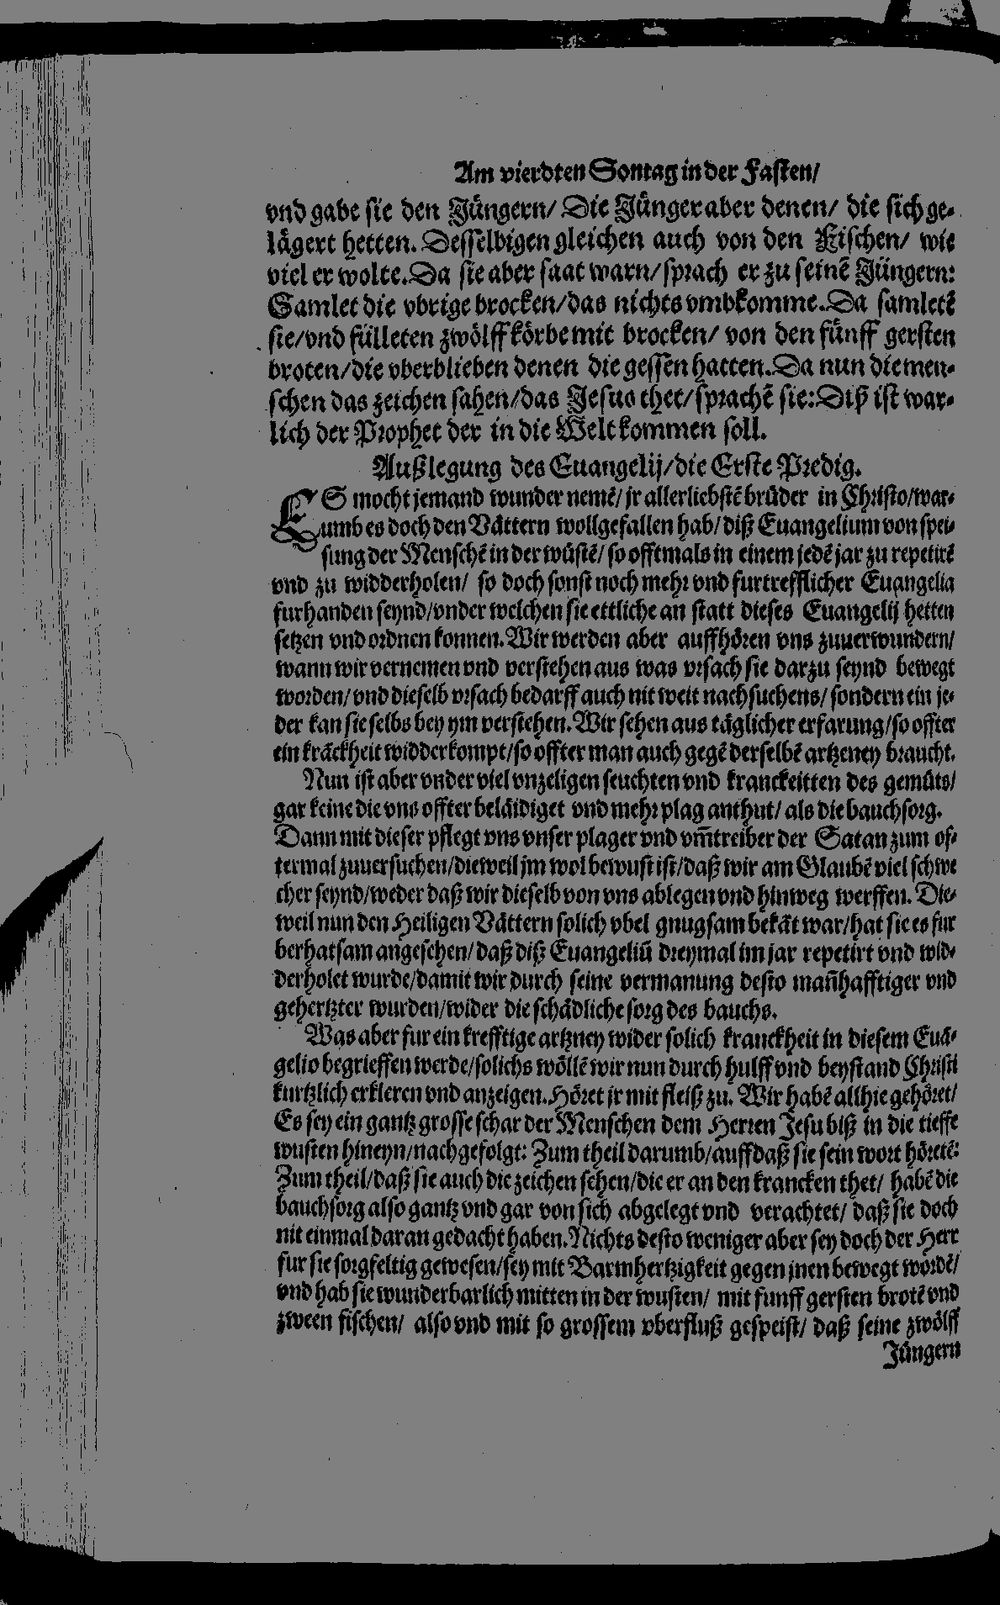 Am vierdten Sontag in der Fasten/
vnd gabe sie den Jüngern/ Die Jünger aber denen/ die sich ge-
lägert hetten. Desselbigen gleichen auch von den Fischen/ wie
viel er wolte. Da sie aber saat warn/ sprach er zu seinē Jüngern:
Samlet die vbrige brocken/ das nichts vmbkomme. Da samletē
sie/ vnd fülleten zwölff körbe mit brocken/ von den fünff gersten
broten/ die vberblieben denen die gessen hatten. Da nun die men-
schen das zeichen sahen/ das Jesus thet/ sprachē sie: Diß ist war-
lich der Prophet der in die Welt kommen soll.
Außlegung des Euangelij/ die Erste Predig.
ES mocht jemand wunder nemē/ jr allerliebstē brüder in Christo/ war-
umb es doch den Vättern wollgefallen hab/ diß Euangelium von spei-
sung der Menschē in der wüstē/ so offtmals in einem jedē jar zu repetirē
vnd zu widderholen/ so doch sonst noch mehr vnd furtrefflicher Euangelia
furhanden seynd/ vnder welchen sie ettliche an statt dieses Euangelij hetten
setzen vnd ordnen konnen. Wir werden aber auffhören vns zuuerwundern/
wann wir vernemen vnd verstehen aus was vrsach sie darzu seynd bewegt
worden/ vnd dieselb vrsach bedarff auch nit weit nachsuchens/ sondern ein je-
der kan sie selbs bey ym verstehen. Wir sehen aus täglicher erfarung/ so offter
ein kräckheit widderkompt/ so offter man auch gegē derselbē artzeney braucht.
Nun ist aber vnder viel vnzeligen seuchten vnd kranckeitten des gemüts/
gar keine die vns offter beläidiget vnd mehr plag anthut/ als die bauchsorg.
Dann mit dieser pflegt vns vnser plager vnd vm̄treiber der Satan zum of-
termal zuuersuchen/ dieweil jm wol bewust ist/ daß wir am Glaubē viel schwe
cher seynd/ weder daß wir dieselb von vns ablegen vnd hinweg werffen. Die-
weil nun den Heiligen Vättern solich vbel gnugsam bekāt war/ hat sie es fur
berhatsam angesehen/ daß diß Euangeliū dreymal im jar repetirt vnd wid-
derholet wurde/ damit wir durch seine vermanung desto man̄hafftiger vnd
gehertzter wurden/ wider die schädliche sorg des bauchs.
Was aber fur ein krefftige artzney wider solich kranckheit in diesem Euā-
gelio begrieffen werde/ solichs wöllē wir nun durch hulff vnd beystand Christi
kurtzlich erkleren vnd anzeigen. Höret jr mit fleiß zu. Wir habē allhie gehöret/
Es sey ein gantz grosse schar der Menschen dem Herren Jesu biß in die tieffe
wusten hineyn/ nachgefolgt: Zum theil darumb/ auff daß sie sein wort höretē:
Zum theil/ daß sie auch die zeichen sehen/ die er an den krancken thet/ habē die
bauchsorg also gantz vnd gar von sich abgelegt vnd verachtet/ daß sie doch
nit einmal daran gedacht haben. Nichts desto weniger aber sey doch der Herr
fur sie sorgfeltig gewesen/ sey mit Barmhertzigkeit gegen jnen bewegt wordē/
vnd hab sie wunderbarlich mitten in der wusten/ mit funff gersten brotē vnd
zween fischen/ also vnd mit so grossem vberfluß gespeist/ daß seine zwölff
Jüngern